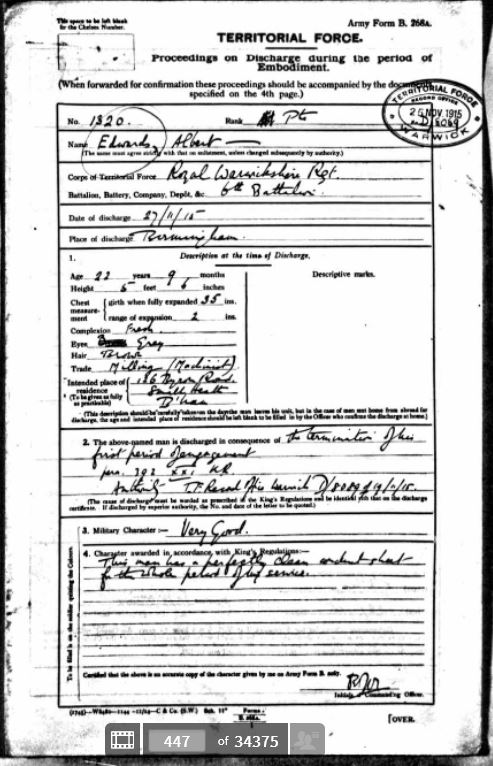 This space to be left blank
for the Chelsea Number.
Army Form B. 268A.
TERRITORIAL FORCE.
Proceedings on Discharge during the period of
Embodiment.
(When forwarded for confirmation these proceedings should be accompanied by the documents
specified on the 4th page.)
TERRITORIAL FORCE
RECORD OFFICE
25 NOV. 1915
D/8089
WARWICK
No. 1320. Rank Pte
Name Edwards, Albert
(The name must agree strictly with that on enlistment, unless changed subsequently by authority.)
Corps of Territorial Force Royal Warwickshire Rgt.
Battalion, Battery, Company, Depôt, &c. 6th Battalion
Date of discharge 27/11/15
Place of discharge Birmingham
1. Description at the time of Discharge.
Age 22 years 9 months
Height 5 feet 6 inches
Chest measurement { girth when fully expanded 35 ins.
range of expansion 2 ins.
Complexion Fresh
Eyes Gray
Hair Brown
Trade Milling (Machinist)
Intended place of residence 186 Byron Road
(To be given as fully as practicable) Small Heath
B'ham
Descriptive marks.
(This description should be carefully taken on the day the man leaves his unit, but in the case of men sent home from abroad for
discharge, the age and intended place of residence should be left blank to be filled in by the Officer who confirms the discharge at home.)
2. The above-named man is discharged in consequence of the termination of his
first period of engagement
para. 392 xxi KR
T.F. Record Office Warwick D/8089 of 19/11/15.
(The cause of discharge must be worded as prescribed in the King's Regulations and be identical with that on the discharge
certificate. If discharged by superior authority, the No. and date of the letter to be quoted.)
3. Military Character :— Very Good.
4. Character awarded in accordance with King's Regulations:—
This man has a perfectly clean conduct sheet
for the whole period of his service.
To be filled in on the soldier quitting the Colours.
Certified that the above is an accurate copy of the character given by me on Army Form B.
Initials Commanding Officer.
Forms
B. 268A.
[OVER.
447 of 34375